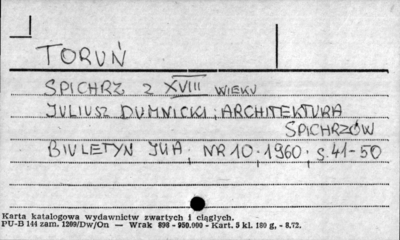 TORUŃ
SPICHRZ Z XVIII WIEKU
JULIUSZ DUMNICKI; ARCHITEKTURA
SPICHRZÓW
BIULETYN IUA, NR 10. 1960. s. 41-50
Karta katalogowa wydawnictw zwartych i ciągłych.
PU-B 144 zam. 1209/Dw/On — Wrak 898 - 950.000 - Kart. 3 kl. 180 g, - 8.72.